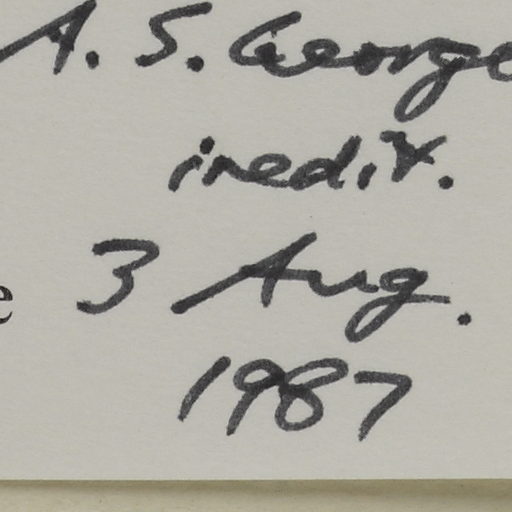 A. S. George
inedit.
e 3 Aug.
1987